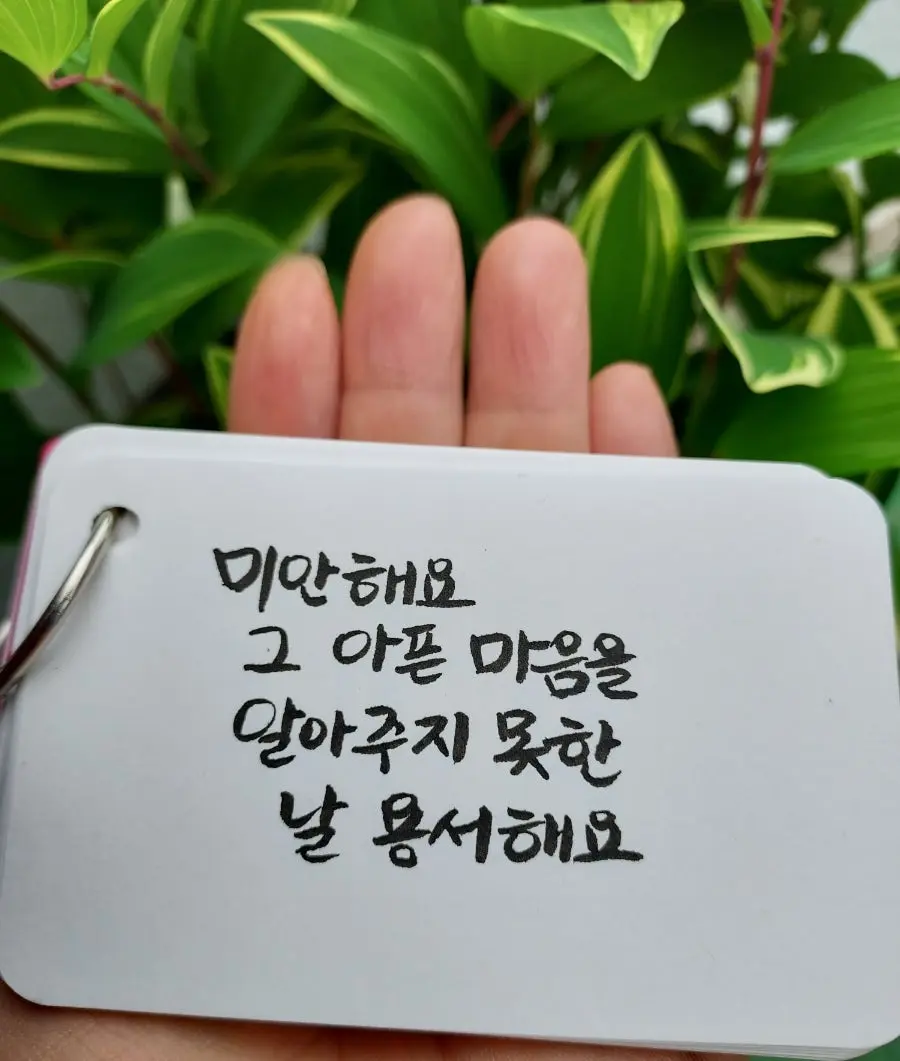 미안해요
그 아픈 마음을
알아주지 못한
날 용서해요